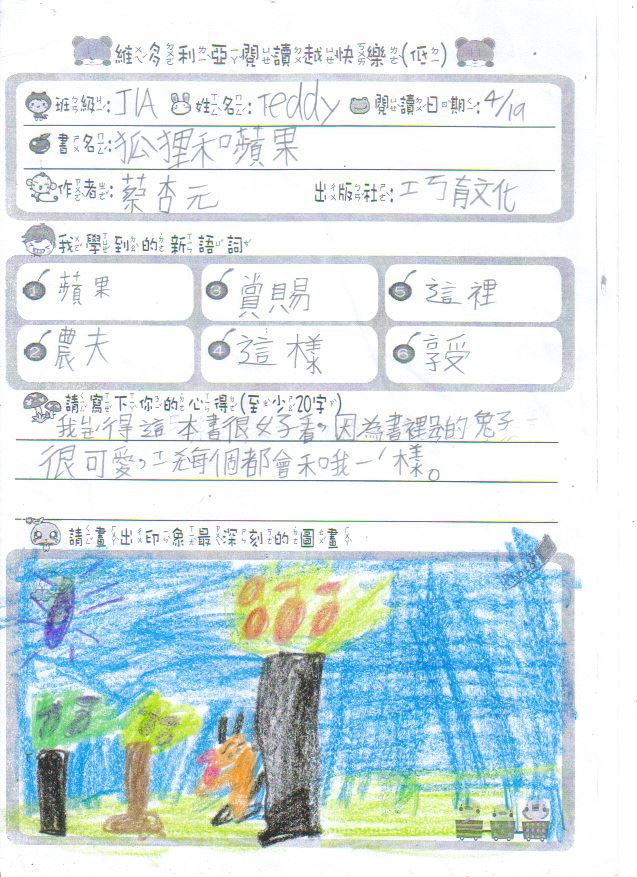 維多利亞閱讀越快樂(低)
班級: J1A 姓名: Teddy 閱讀日期: 4/19
書名: 狐狸和蘋果
作者: 蔡杏元 出版社: 工丂育文化
我學到的新語詞
1 蘋果 3 賞賜 5 這裡
2 農夫 4 這樣 6 享受
請寫下你的心得(至少20字)
我覺得這本書很好看,因為書裡的兔子
很可愛,每個都會和我一樣。
請畫出印象最深刻的圖畫